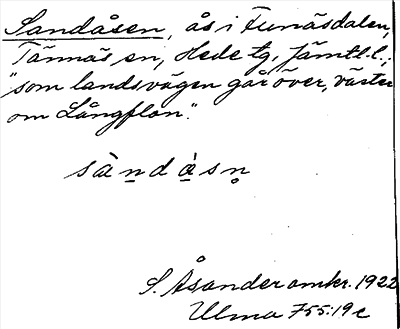 Sandåsen, ås i Funäsdalen,
Tännäs sn, Hede tg, Jämtl. l.;
"som landsvägen går över, väster
om Långflon".
sàn̠dạ̀sn̥
S. Åsander omkr. 1922
Ulma 755:19c